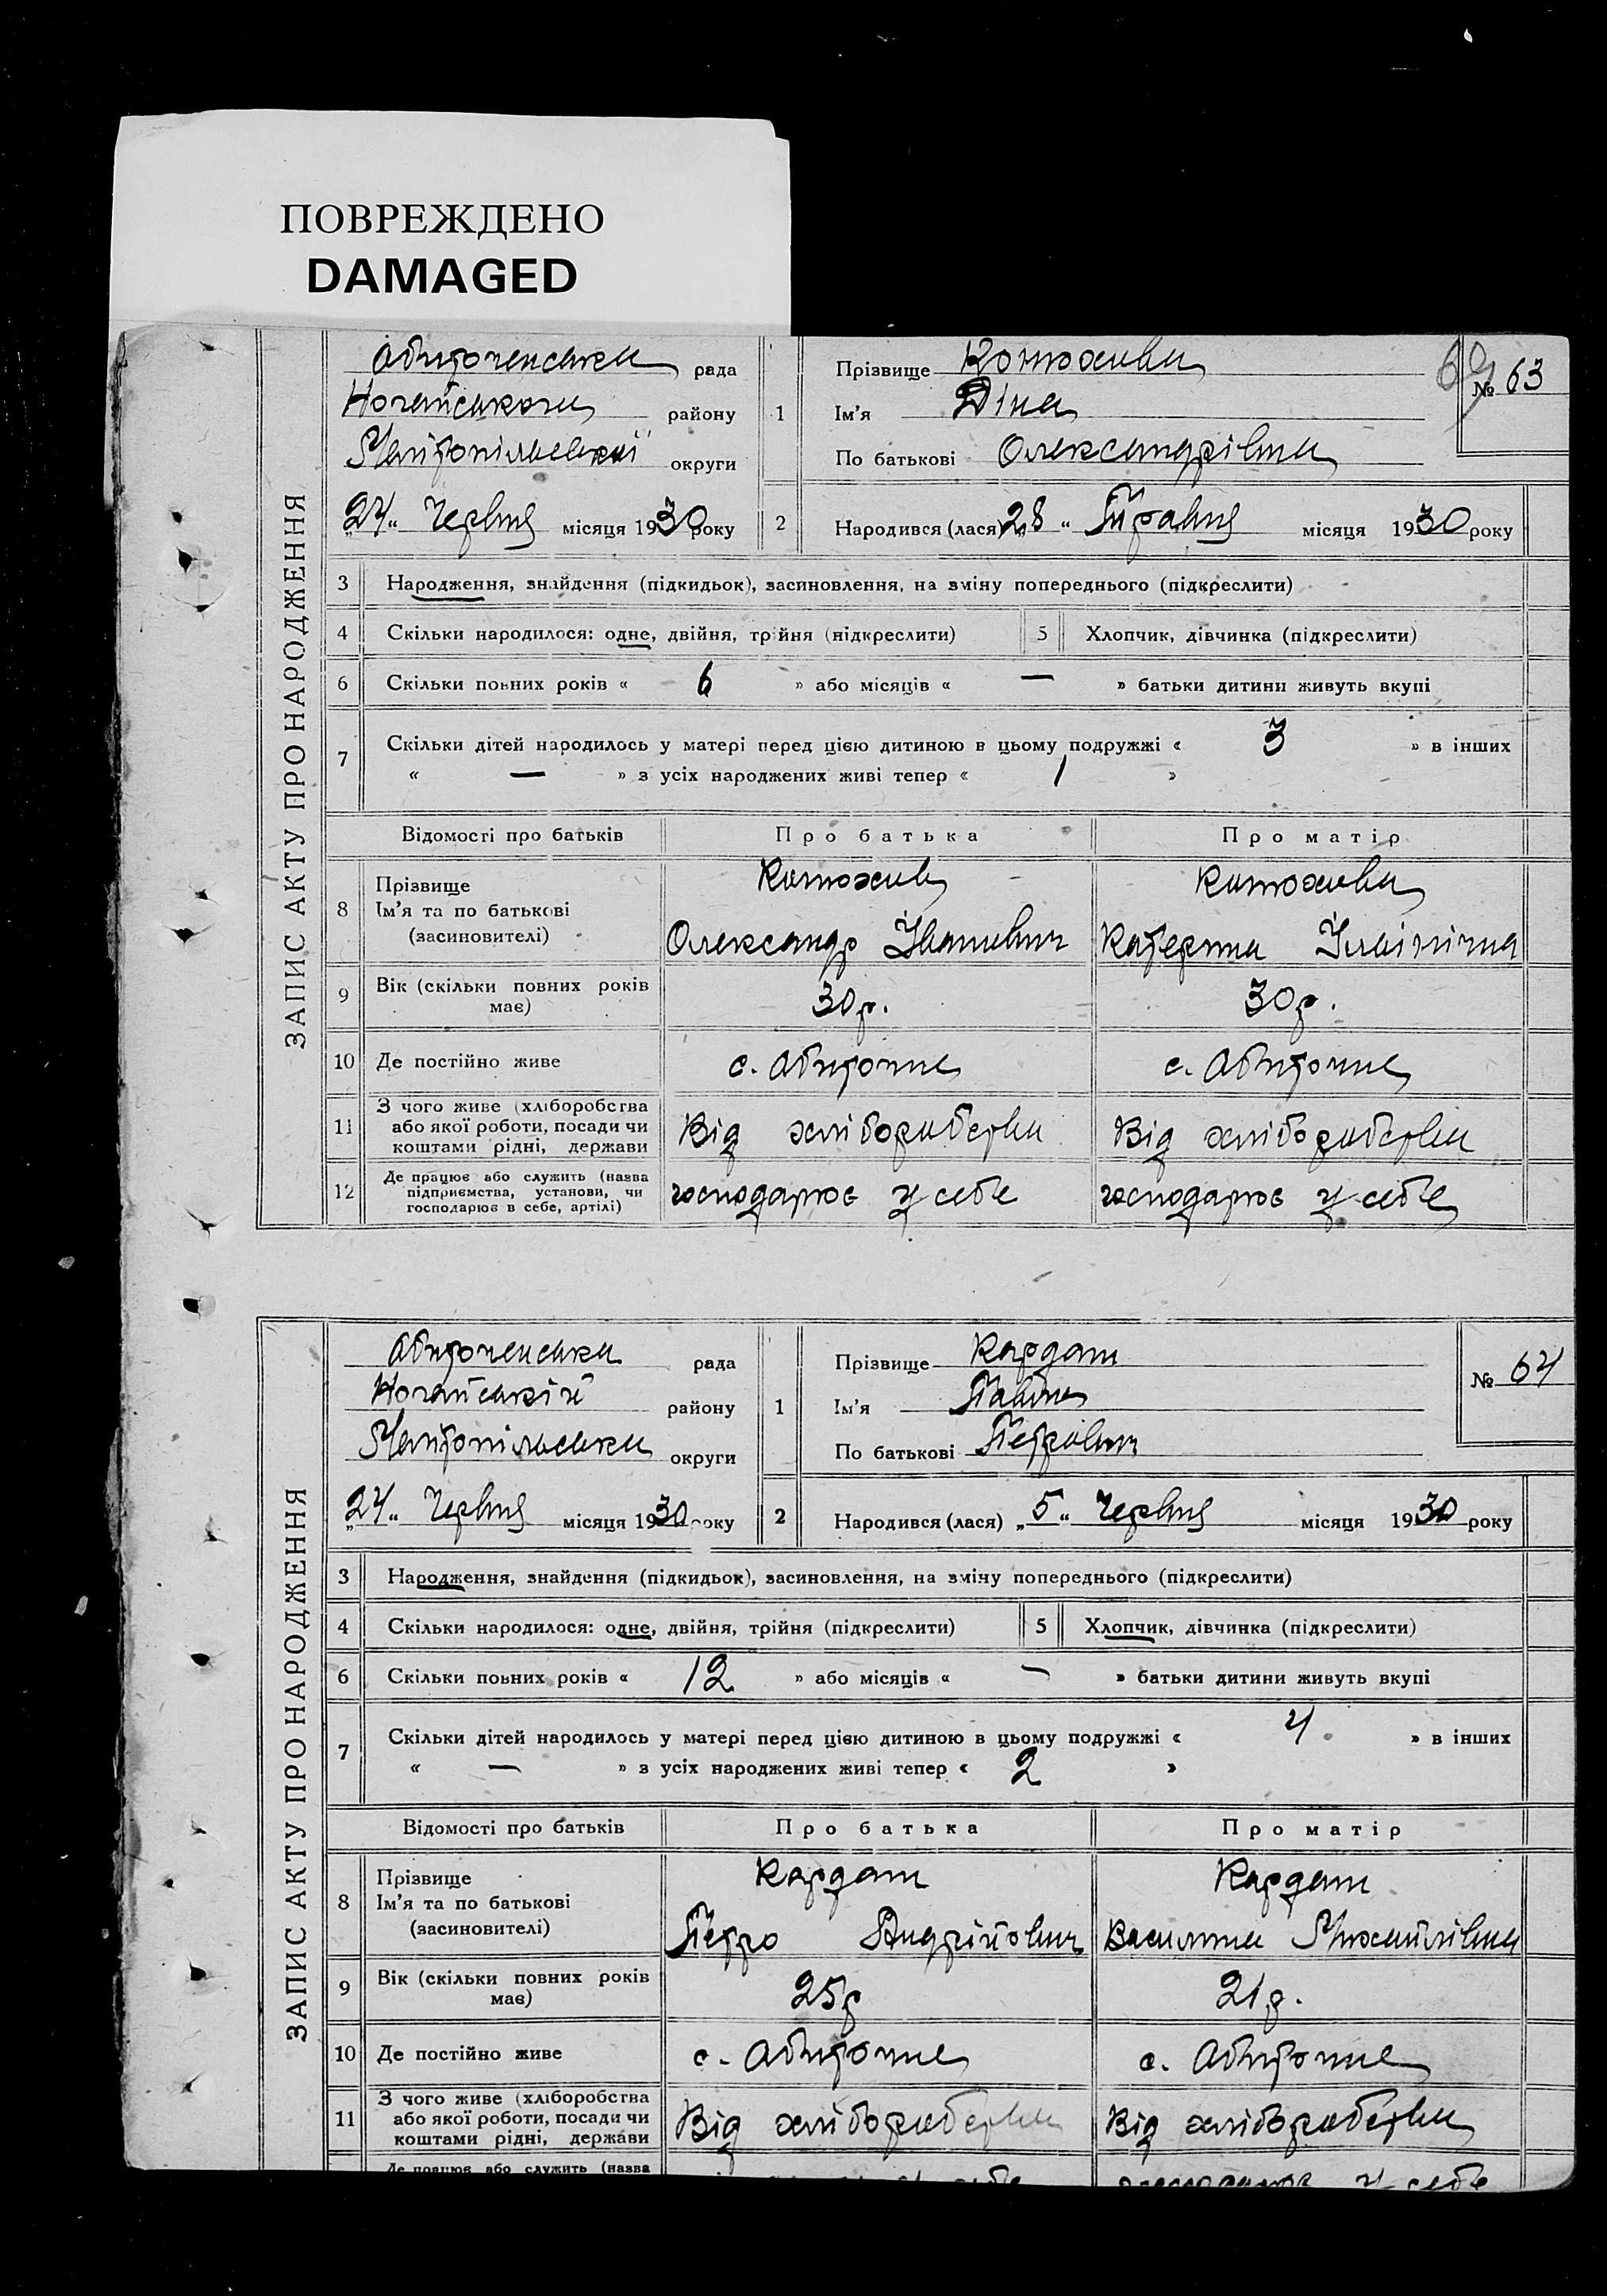 ПОВРЕЖДЕНО
DAMAGED
ЗАПИС АКТУ ПРО НАРОДЖЕННЯ
Обиточенська рада
Ногайського району
округи
24 Червня місяця 1930 року
1 Прізвище
Ім'я Діна
По батькові Олександрівна
№ 63
2 Народився (лася) „28“ Травня місяця 1930 року
3 Народження, знайдення (підкидьок), засиновлення, на зміну попереднього (підкреслити)
4 Скільки народилося: одне, двійня, трійня (підкреслити) 5 Хлопчик, дівчинка (підкреслити)
6 Скільки повних років « 6 » або місяців « — » батьки дитини живуть вкупі
7 Скільки дітей народилось у матері перед цією дитиною в цьому подружжі « 3 » в інших
« — » з усіх народжених живі тепер « 1 »
Відомості про батьків Про батька Про матір
8 Прізвище
Ім'я та по батькові
(засиновителі)
Олександр Іванович Катерина
9 Вік (скільки повних років має) 30 р. 30 р.
10 Де постійно живе с. Обиточне с. Обиточне
11 З чого живе (хліборобства
або якої роботи, посади чи
коштами рідні, держави
Від хліборобства Від хліборобства
12 Де працює або служить (назва
підприємства, установи, чи
господарює в себе, артілі)
господарює у себе господарює у себе
ЗАПИС АКТУ ПРО НАРОДЖЕННЯ
Обиточенська рада
Ногайській району
Мелітопільська округи
„24“ Червня місяця 1930 року
1 Прізвище Кардаш
Ім'я
По батькові Петрович
№ 64
2 Народився (лася) „5“ Червня місяця 1930 року
3 Народження, знайдення (підкидьок), засиновлення, на зміну попереднього (підкреслити)
4 Скільки народилося: одне, двійня, трійня (підкреслити) 5 Хлопчик, дівчинка (підкреслити)
6 Скільки повних років « 12 » або місяців « — » батьки дитини живуть вкупі
7 Скільки дітей народилось у матері перед цією дитиною в цьому подружжі « 4 » в інших
« — » з усіх народжених живі тепер « 2 »
Відомості про батьків Про батька Про матір
8 Прізвище
Ім'я та по батькові
(засиновителі)
Кардаш Кардаш
Петро Андрійович Василина Михайлівна
9 Вік (скільки повних років має) 25 р 21 р.
10 Де постійно живе с. Обиточне с. Обиточне
11 З чого живе (хліборобства
або якої роботи, посади чи
коштами рідні, держави
Від хліборобства Від хліборобства
Де працює або служить (назва
господарює у себе